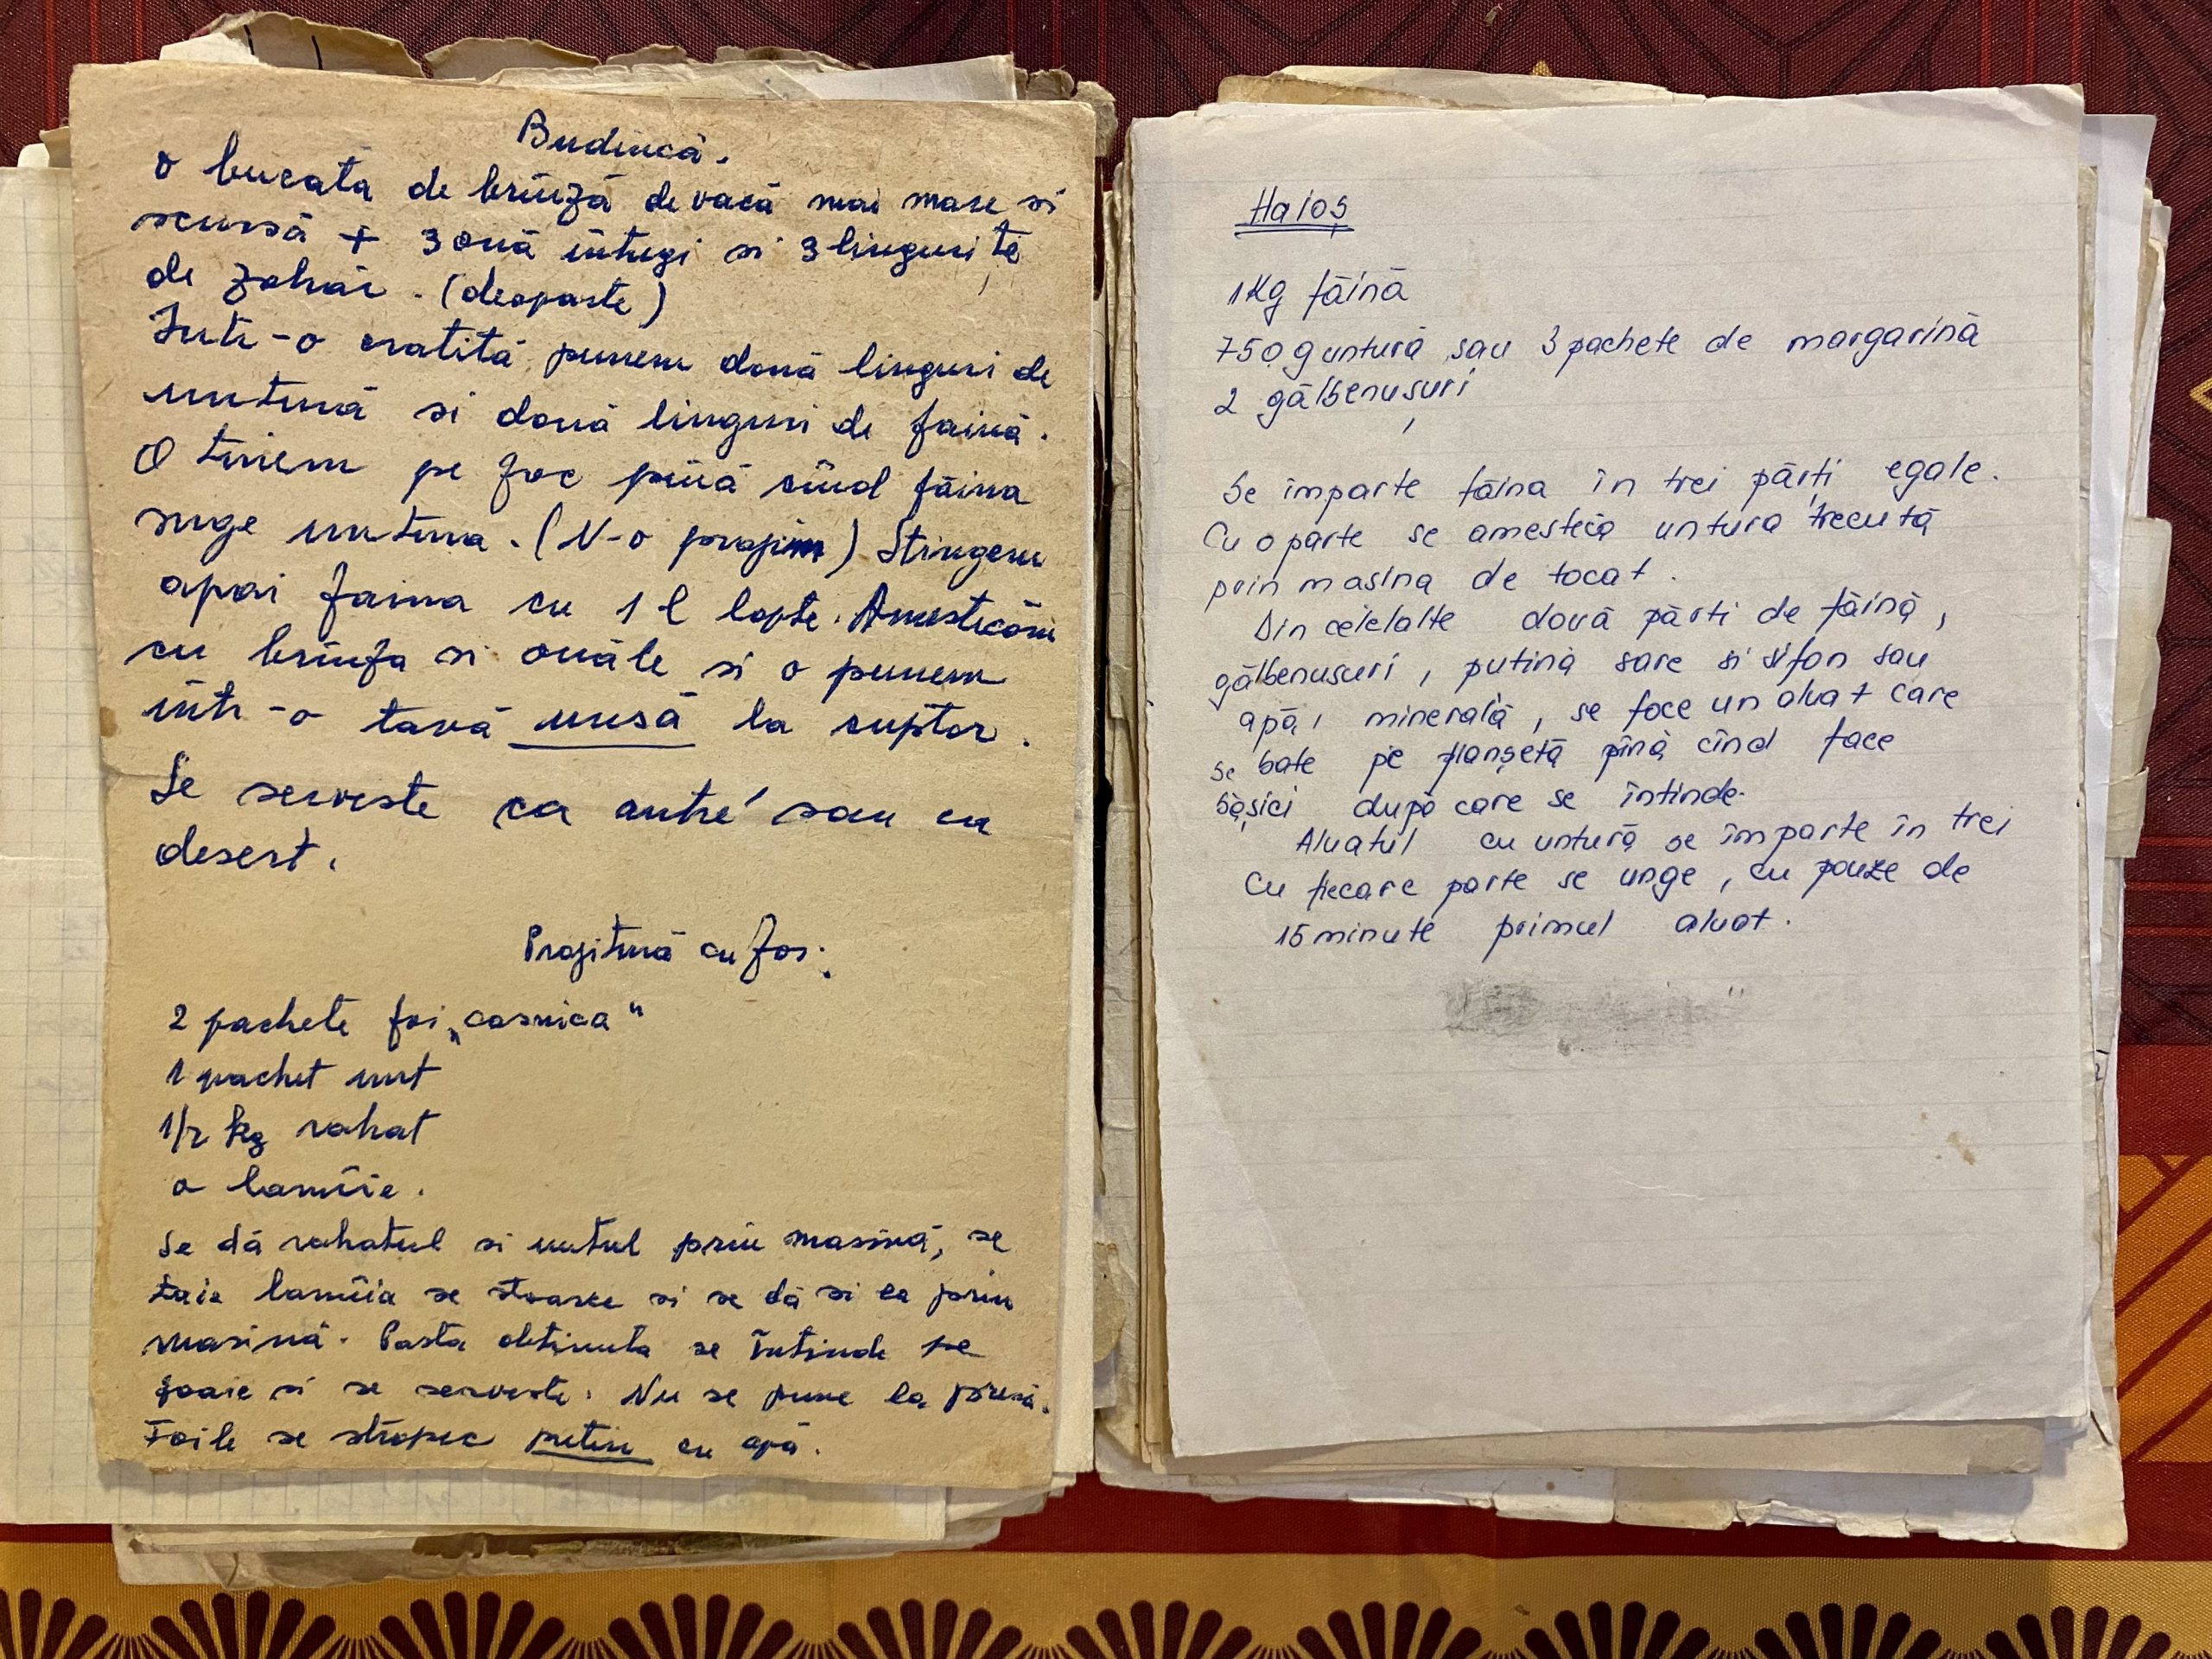 Budincă.
o bucata de brînză de vacă mai mare si
scursă + 3 ouă întregi si 3 lingurițe
de zahăr. (deoparte)
Într-o cratită punem două linguri de
untură si două linguri de faină.
O tinem pe foc pînă cînd făina
suge untura. (N-o prajim) Stingem
apoi faina cu 1 l lapte. Amestecăm
cu brînza si ouăle si o punem
într-o tavă unsă la cuptor.
Se serveste ca antré sau ca
desert.
Prajitură cu foi.
2 pachete foi „casnica"
1 pachet unt
1/2 kg rahat
o lamîie.
Se dă rahatul si untul prin masină, se
taie lamîia se stoarce si se dă si ea prin
masină. Pasta obtinuta se întinde pe
foaie si se serveste. Nu se pune la presă.
Foile se stropesc putin cu apă.
Haioș
1 Kg făină
750 g untură sau 3 pachete de margarină
2 gălbenușuri
Se împarte făina în trei părți egale.
Cu o parte se amestecă untura trecută
prin masina de tocat.
Din celelalte două părti de făină,
gălbenusuri, putină sare si sifon sau
apă, minerală, se face un aluat care
se bate pe planșetă pînă cînd face
bășici după care se întinde.
Aluatul cu untură se împarte în trei
Cu fiecare parte se unge, cu pauze de
15 minute primul aluat.